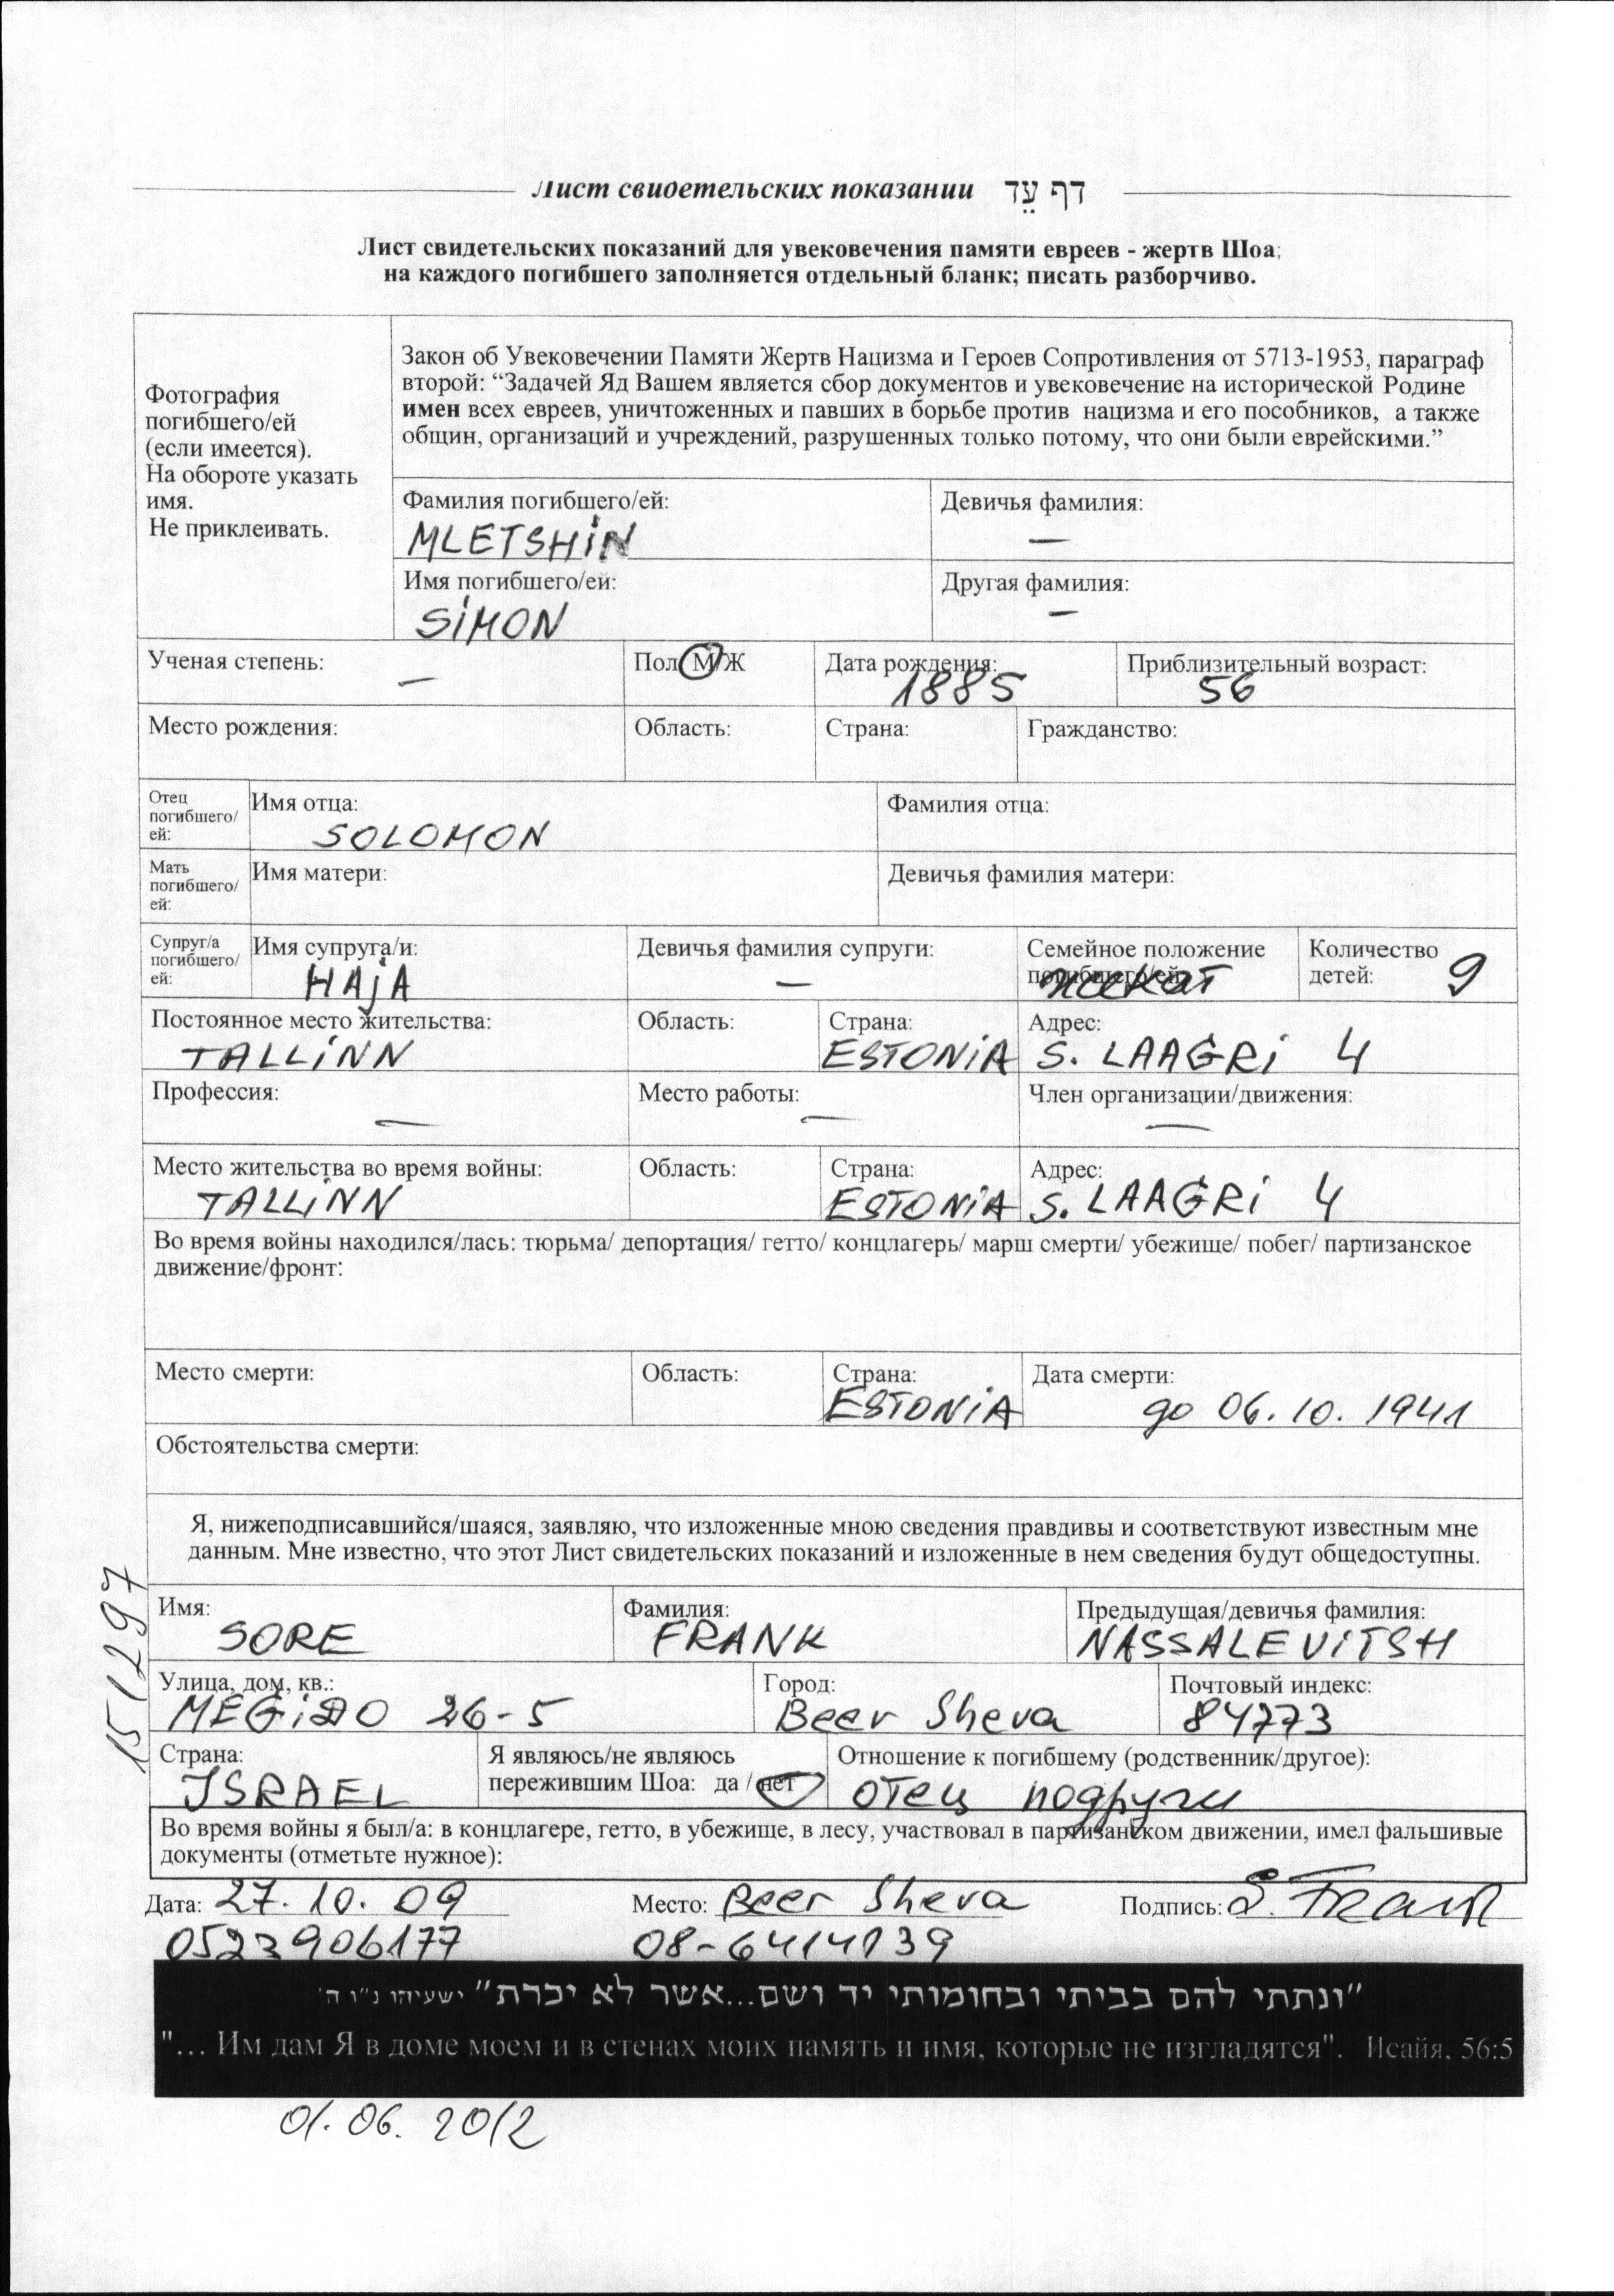 Лист свидетельских показании דף עֵד
Лист свидетельских показаний для увековечения памяти евреев - жертв Шоа;
на каждого погибшего заполняется отдельный бланк; писать разборчиво.
Фотография
погибшего/ей
(если имеется).
На обороте указать
имя.
Не приклеивать.
Закон об Увековечении Памяти Жертв Нацизма и Героев Сопротивления от 5713-1953, параграф
второй: “Задачей Яд Вашем является сбор документов и увековечение на исторической Родине
имен всех евреев, уничтоженных и павших в борьбе против нацизма и его пособников, а также
общин, организаций и учреждений, разрушенных только потому, что они были еврейскими.”
Фамилия погибшего/ей: Девичья фамилия:
MLETSHIN —
Имя погибшего/ей: Другая фамилия:
SIMON —
Ученая степень: — Пол М/Ж Дата рождения: Приблизительный возраст:
1885 56
Место рождения: Область: Страна: Гражданство:
Отец
погибшего/
ей:
Имя отца: Фамилия отца:
SOLOMON
Мать
погибшего/
ей:
Имя матери: Девичья фамилия матери:
Супруг/а
погибшего/
ей:
Имя супруга/и: Девичья фамилия супруги: Семейное положение
погибшего/ей: Количество
детей: 9
HAJA — женат
Постоянное место жительства: Область: Страна: Адрес:
TALLINN ESTONIA S. LAAGRI 4
Профессия: Место работы: Член организации/движения:
— — —
Место жительства во время войны: Область: Страна: Адрес:
TALLINN ESTONIA S. LAAGRI 4
Во время войны находился/лась: тюрьма/ депортация/ гетто/ концлагерь/ марш смерти/ убежище/ побег/ партизанское
движение/фронт:
Место смерти: Область: Страна: Дата смерти:
ESTONIA до 06.10.1941
Обстоятельства смерти:
Я, нижеподписавшийся/шаяся, заявляю, что изложенные мною сведения правдивы и соответствуют известным мне
данным. Мне известно, что этот Лист свидетельских показаний и изложенные в нем сведения будут общедоступны.
Имя: Фамилия: Предыдущая/девичья фамилия:
SORE FRANK NASSALEVITSH
Улица, дом, кв.: Город: Почтовый индекс:
MEGIDO 26-5 Beer Sheva 84773
Страна: Я являюсь/не являюсь
пережившим Шоа: да / нет Отношение к погибшему (родственник/другое):
ISRAEL отец подруги
Во время войны я был/а: в концлагере, гетто, в убежище, в лесу, участвовал в партизанском движении, имел фальшивые
документы (отметьте нужное):
Дата: 27.10.09 Место: Beer Sheva Подпись: S. Frank
0523906177 08-6414139
"ונתתי להם בביתי ובחומותי יד ושם...אשר לא יכרת" ישעיהו נ"ו ה'
"... Им дам Я в доме моем и в стенах моих память и имя, которые не изгладятся". Исайя, 56:5
01.06.2012